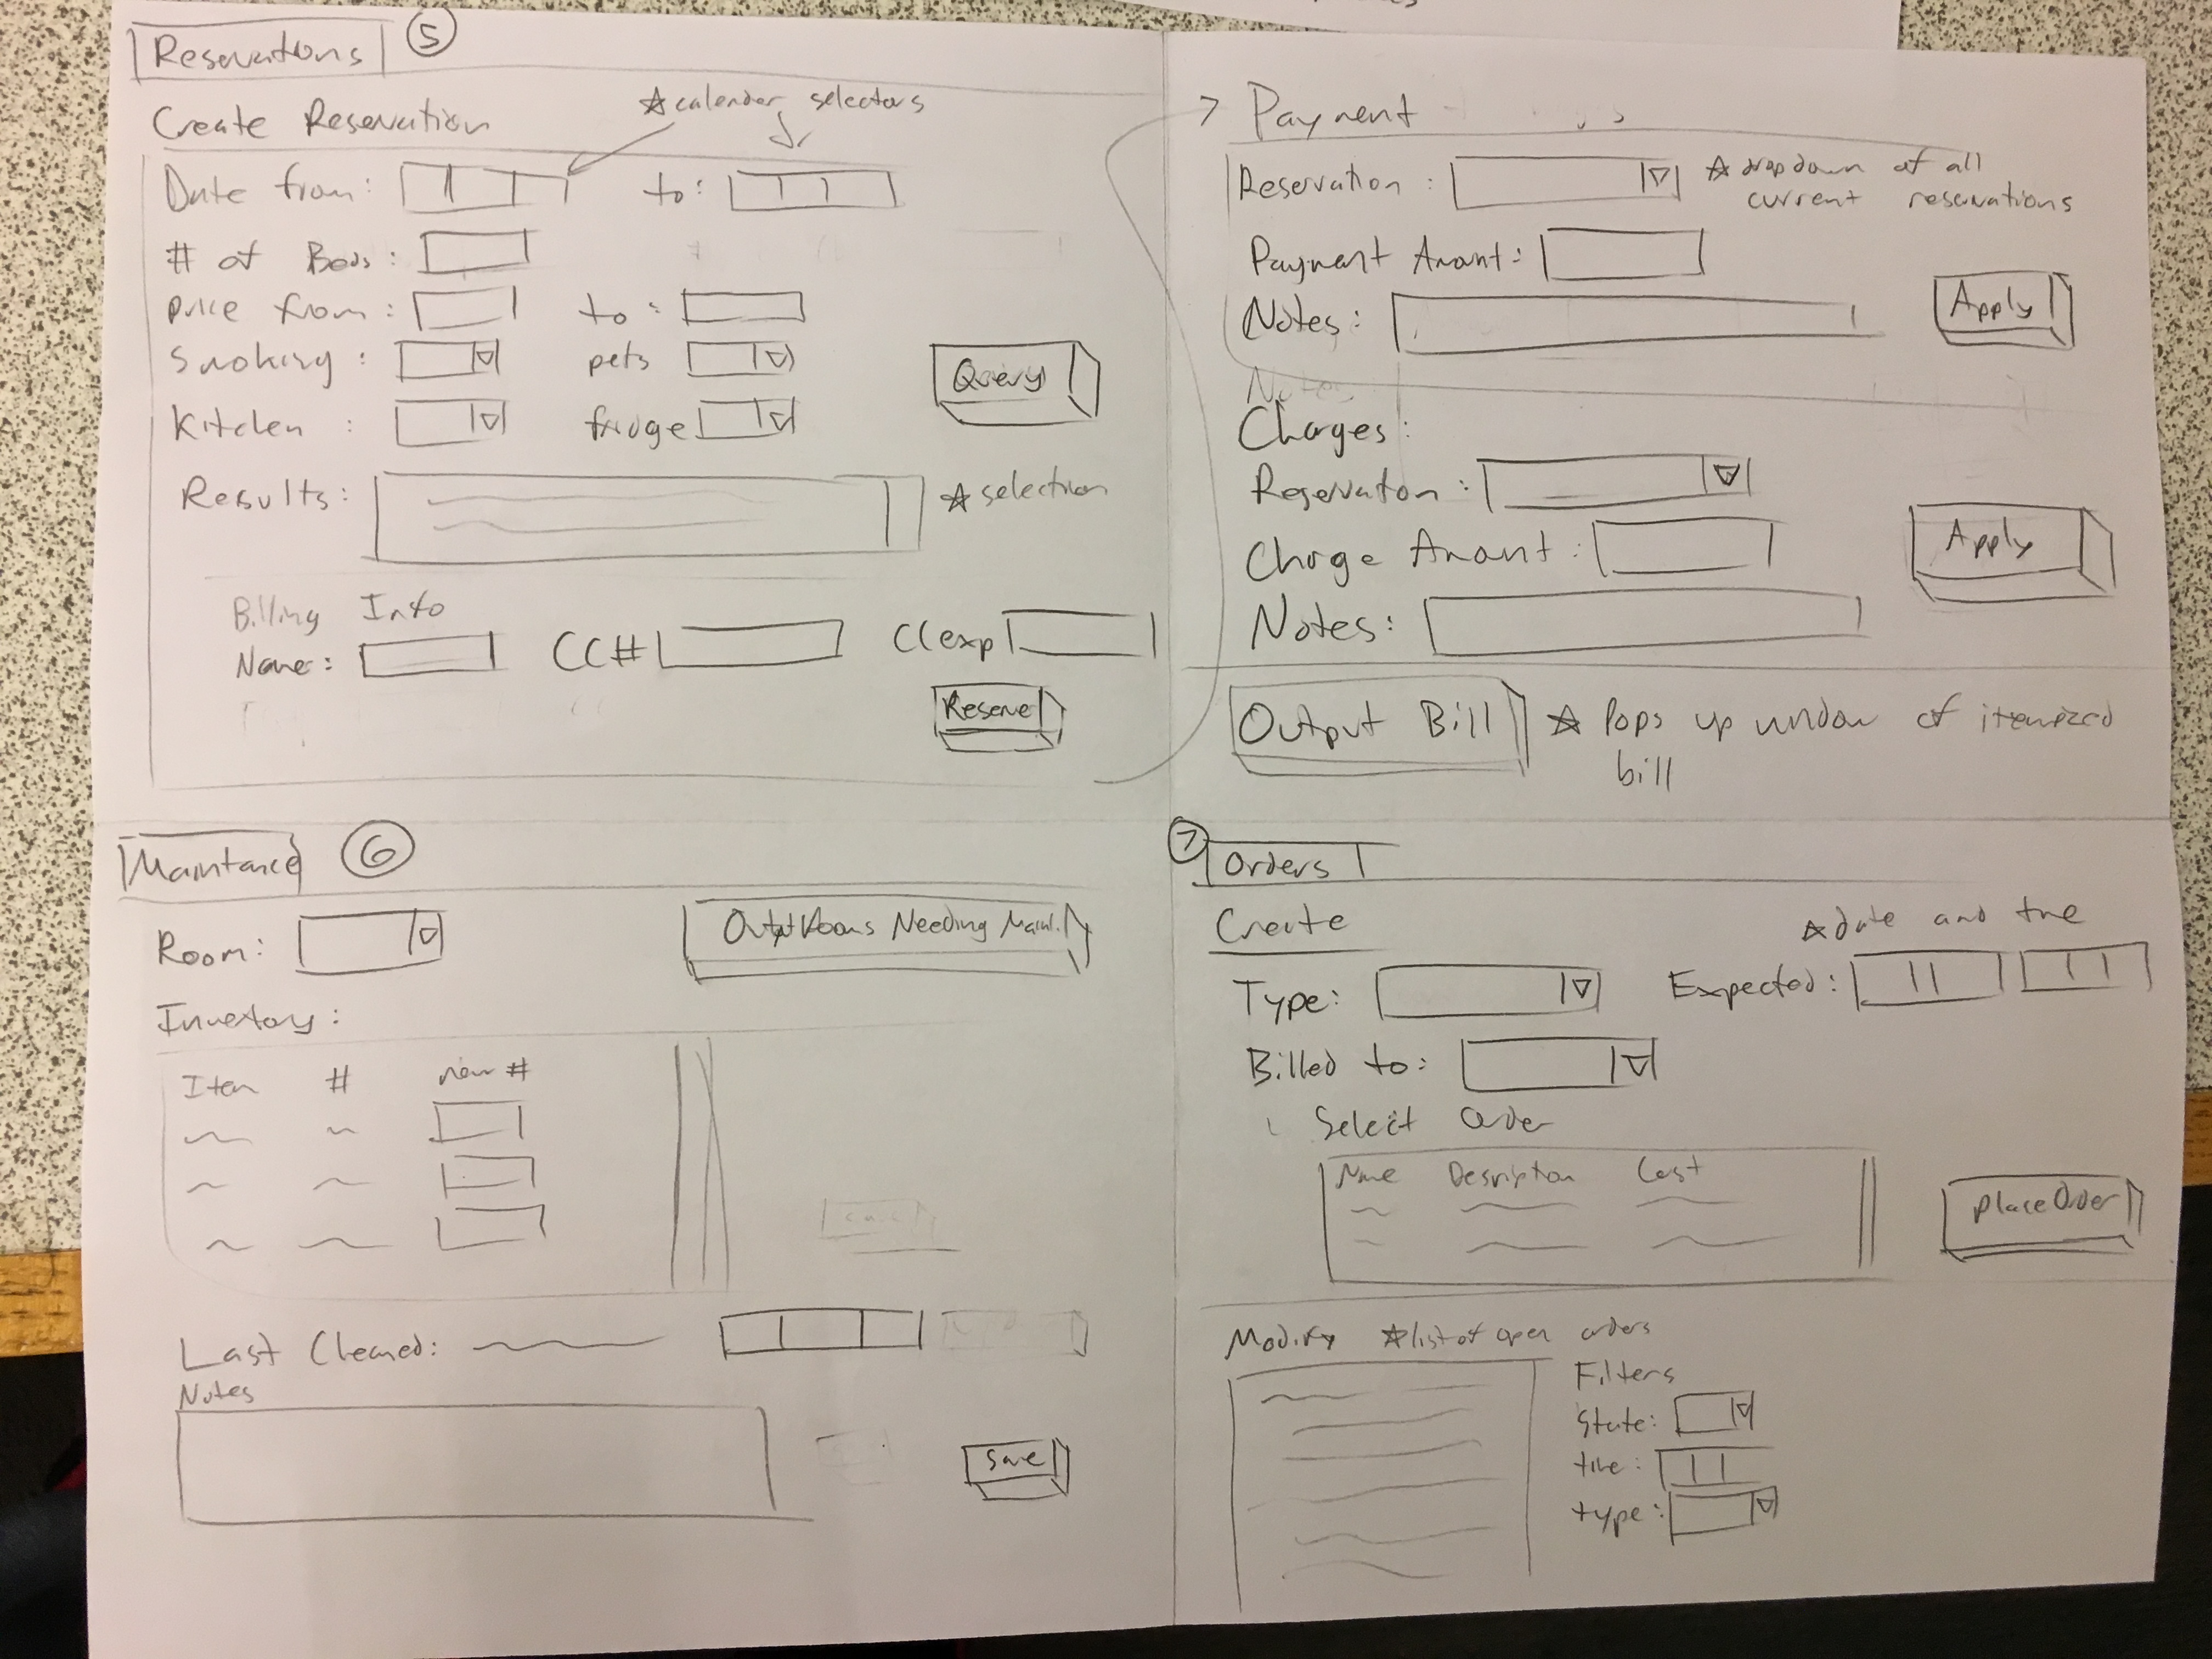 Reservations 5
Create Reservation
☆ calender selectors
Date from: to:
# of Beds:
Price from: to:
Smoking: pets
Kitchen: fridge
Query
Results:
☆ selection
Billing Info
Name: CC# CCexp
Reserve
Payment
Reservation:
☆ dropdown of all
current reservations
Payment Amount:
Notes:
Apply
Charges:
Reservation:
Charge Amount:
Notes:
Apply
Output Bill
☆ Pops up window of itemized
bill
Maintance 6
Room:
Output Rooms Needing Maint.
Inventory:
Item # new #
Last Cleaned:
Notes
Save
7 Orders
Create
☆ date and time
Type: Expected:
Billed to:
Select Order
Name Desription Cost
Place Order
Modify ☆ list of open orders
Filters
State:
time:
type: